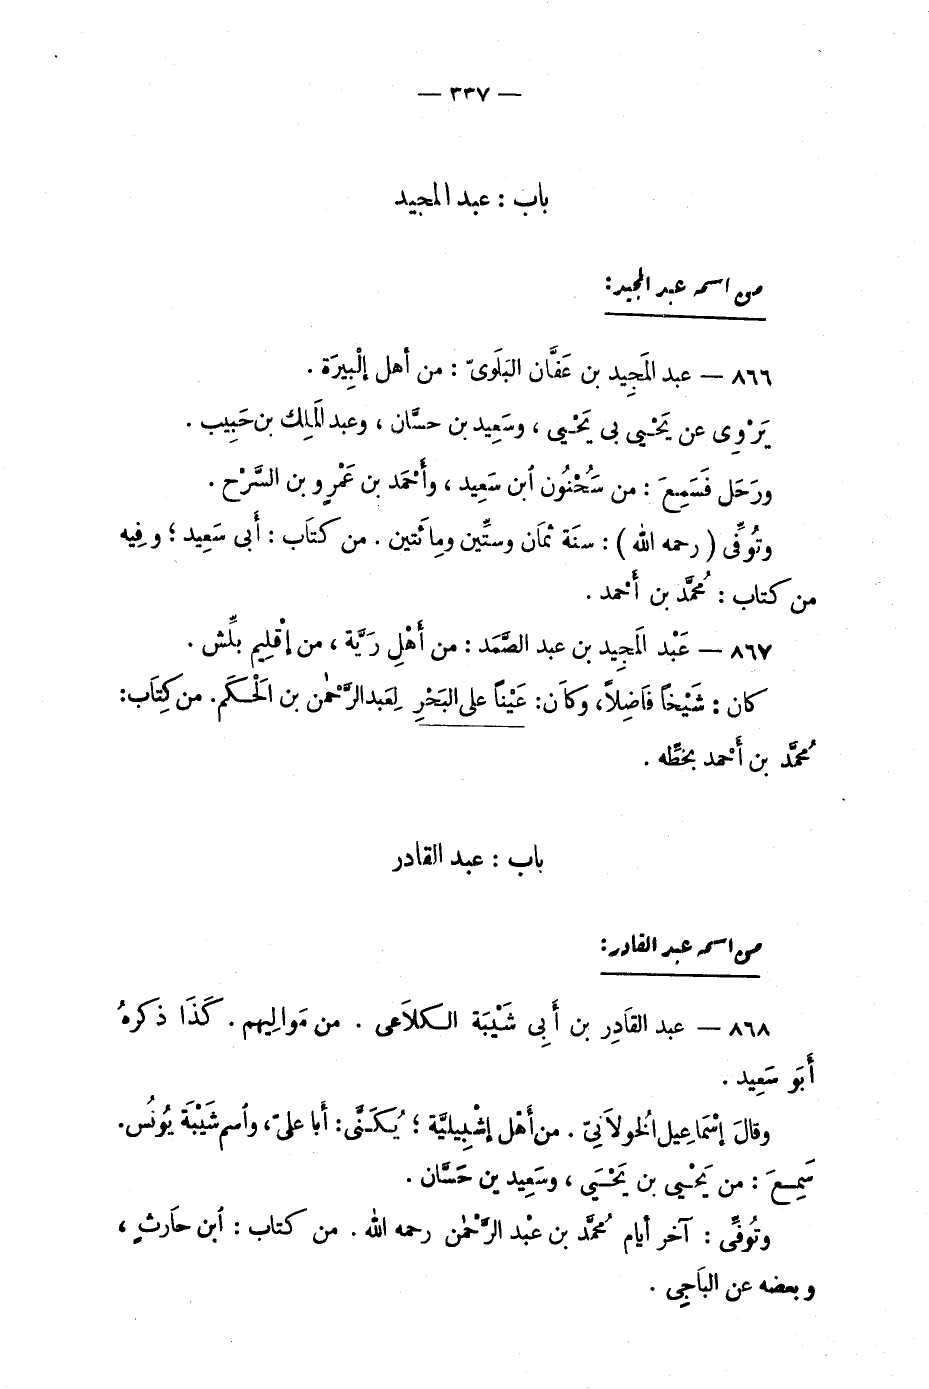 — ٣٣٧ —
باب : عبد المجيد
من اسمه عبد المجيد :
٨٦٦ — عبد المَجِيد بن عَفَّان البَلَوىّ : من أهل إلْبِيرَة .
يَرْوِى عن يَحْيى بى يَحْيى ، وسَعِيد بن حسَّان ، وعبد المَلِك بن حَبِيب .
ورَحَل فَسَمِعَ : من سَحْنُون أبن سَعِيد ، وأَحْمَد بن عَمْرٍ و بن السَّرْح .
وتُوفِّى ( رحمه الله ) : سنَة ثمَان وستِّين ومِائَتين . من كتَاب : أَبى سَعِيد ؛ و فِيه
من كتاب : مُحمَّد بن أَحْمد .
٨٦٧ — عَبْد المَجِيد بن عبد الصَّمَد : من أَهْلِ رَيَّة ، من إقْلِيم بلِّش .
كان : شَيْخاً فَاضِلاً ، وكاَن : عَيْناً على البَحْرِ لِعَبد الرَّحْمٰن بن الْحكَم . من كِتَاب :
مُحمَّد بن أَحْمد بخطِّه .
باب : عبد القادر
من اسمه عبد القادر :
٨٦٨ — عبد القَادِر بن أَبِى شَيْبَة الكلاَعى . من مَوالِيهم . كَذَا ذكرهُ
أَبَو سَعِيد .
وقالَ إسْمَاعِيل الْخولاَنِىّ . من أَهْل إشْبِيليَّة ؛ يُكَنَّى : أَبا علىّ ، وأسم شَيْبَة يُونُس .
سَمِعَ : من يَحْيى بن يَحْيَي ، وسَعِيد بن حَسَّان .
وتُوفِّى : آخر أيام مُحمَّد بن عبْد الرَّحْمٰن رحمه الله . من كتاب : أبن حَارثٍ ،
و بعضه عن البَاجِى .